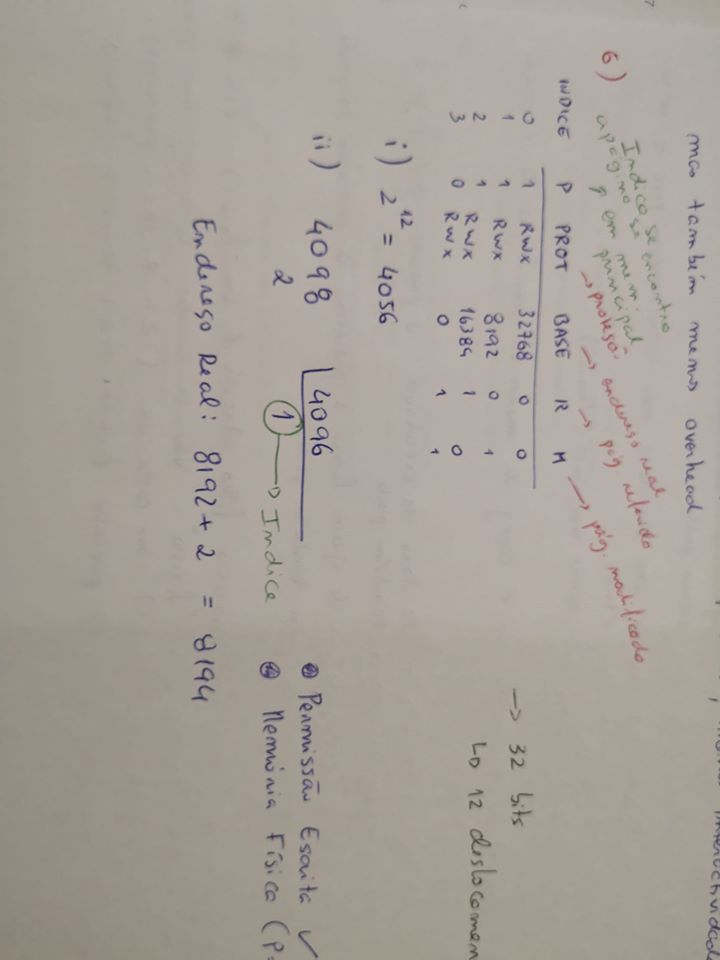 interactividade
mas também menos overhead
6)
Indica se
a página se encontra
em mem.
principal
→ proteção
→ endereço real
→ pág referida
→ pág. modificada
INDICE P PROT BASE R M
0 1 RWX 32768 0 0
1 1 RWX 8192 0 1
2 1 RWX 16384 1 0
3 0 RWX 0 1 1
→ 32 bits
↳ 12 deslocamen
i) 2^12 = 4056
ii) 4098 | 4096
2 1 → Indice
• Permissão Escrita ✓
• Memória Física (P=
Endereço Real: 8192 + 2 = 8194